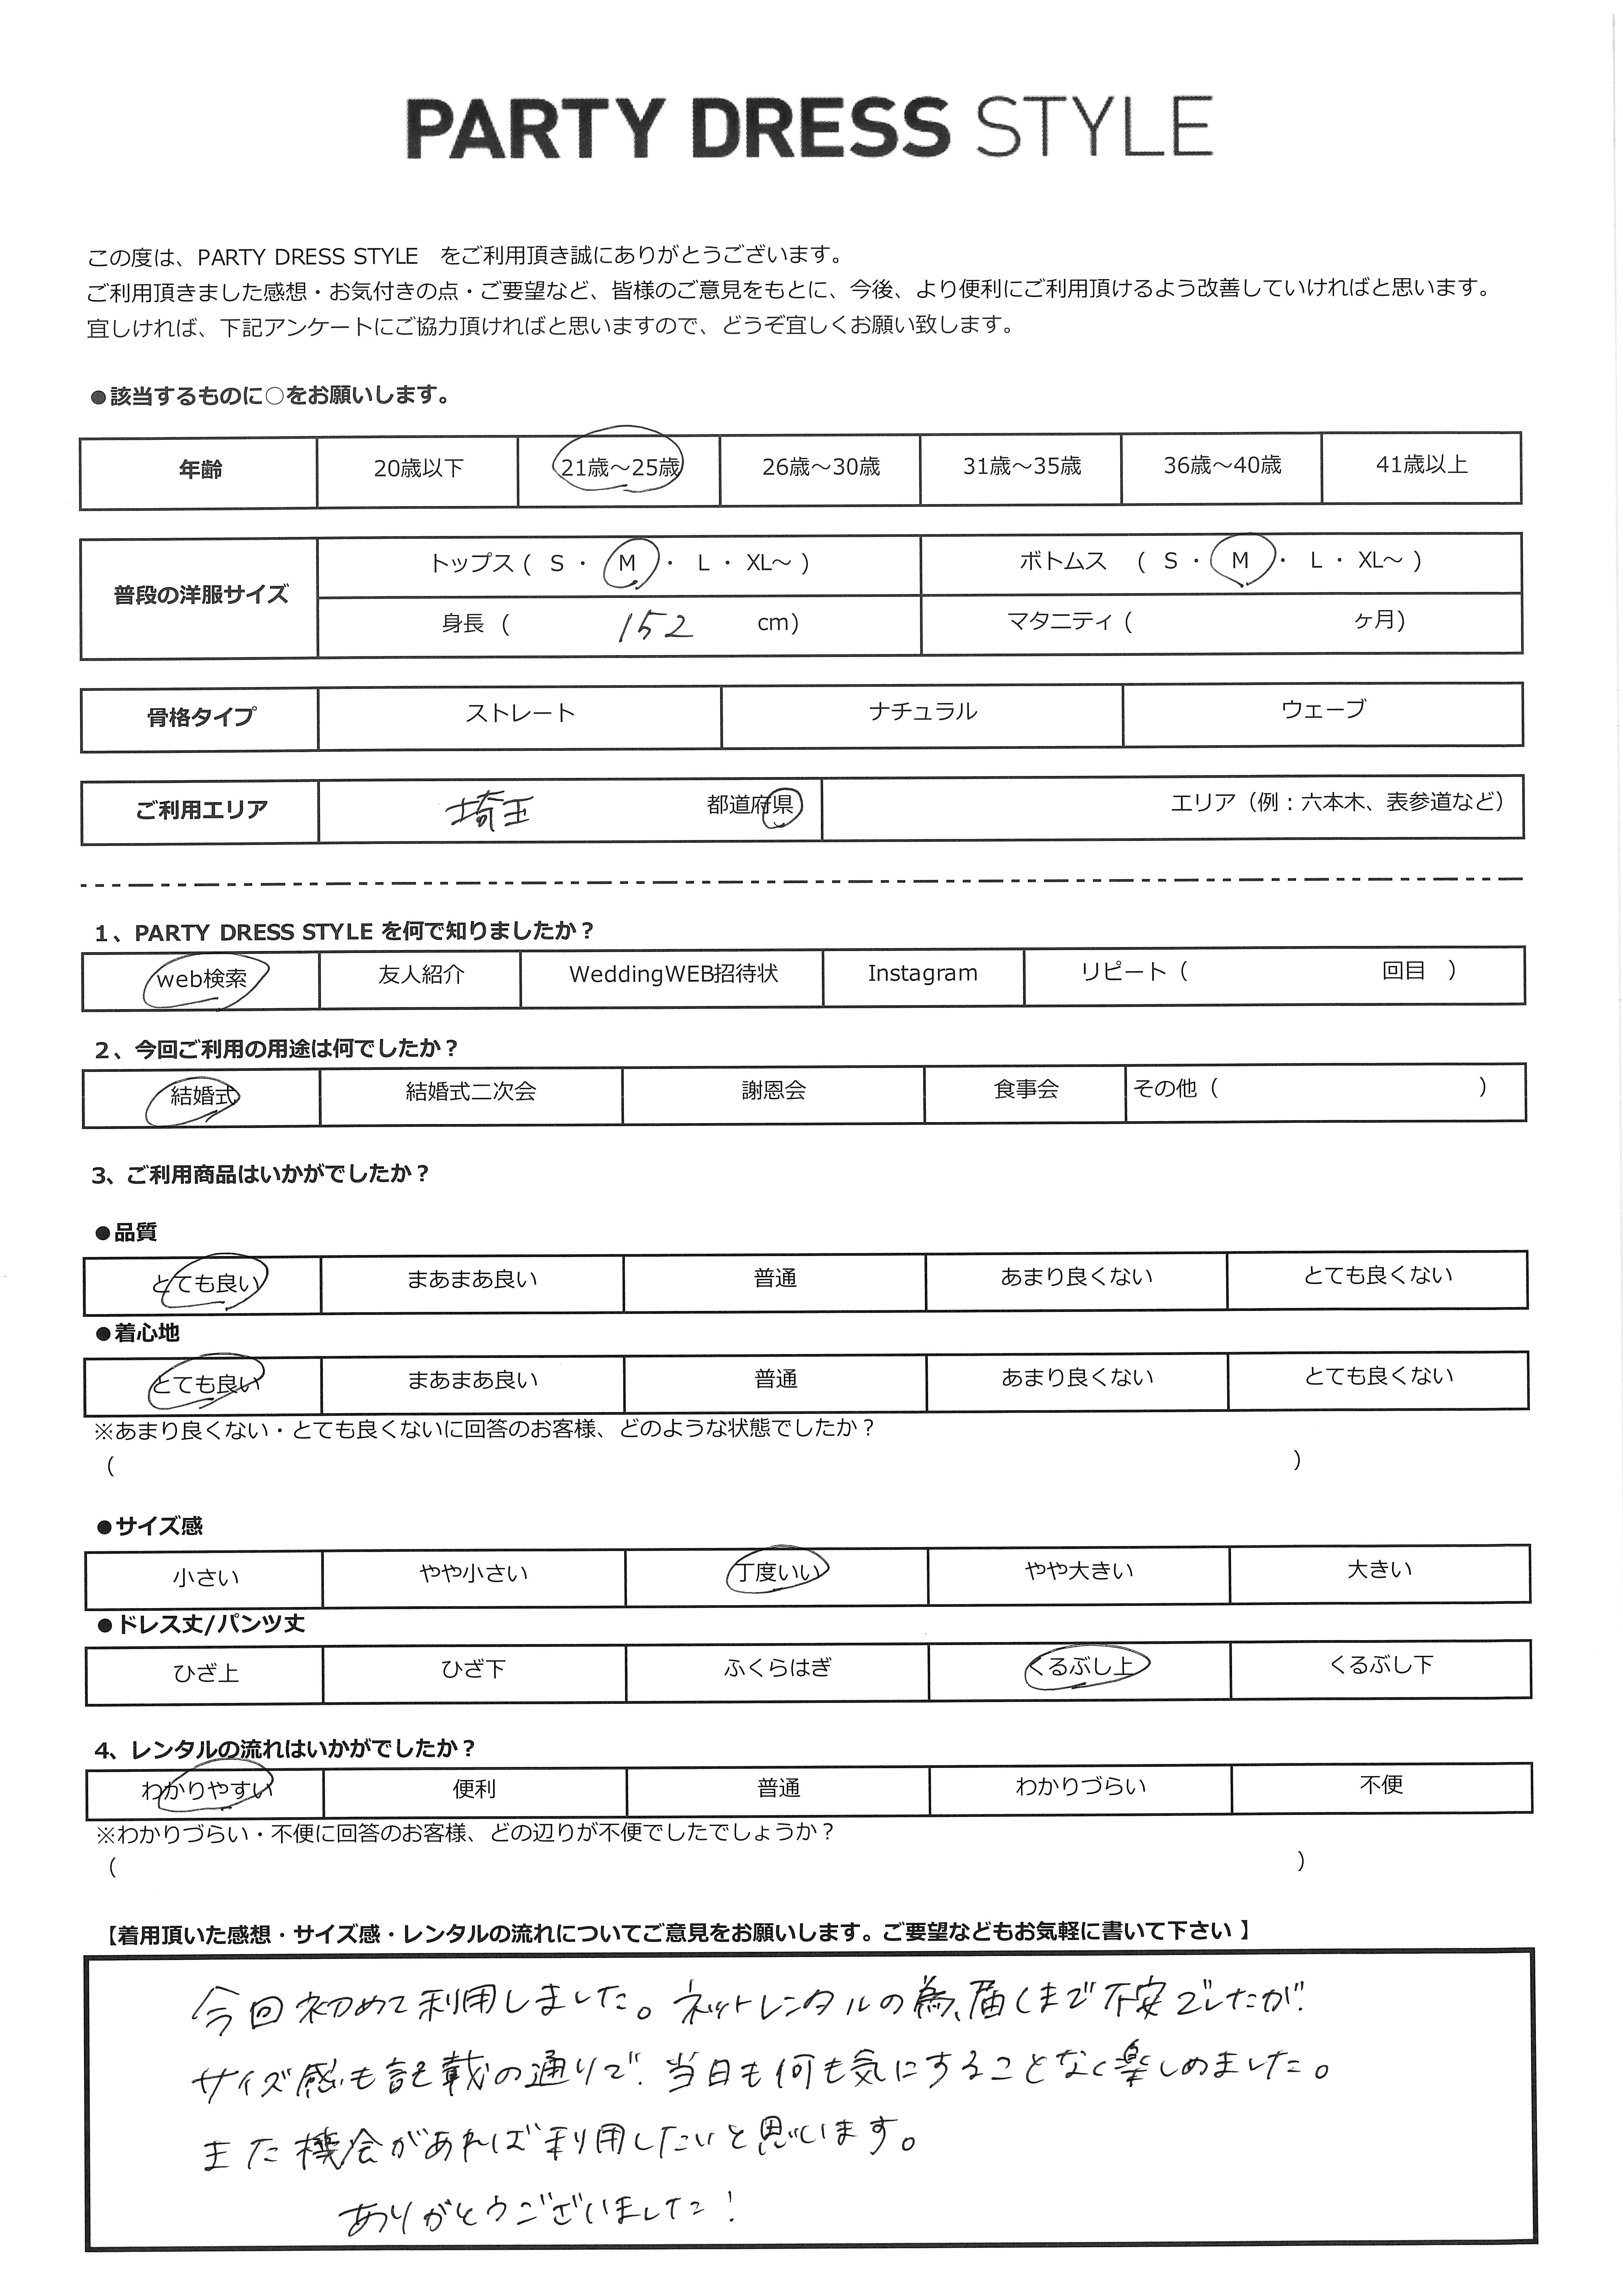 PARTY DRESS STYLE
この度は、PARTY DRESS STYLE をご利用頂き誠にありがとうございます。
ご利用頂きました感想・お気付きの点・ご要望など、皆様のご意見をもとに、今後、より便利にご利用頂けるよう改善していければと思います。
宜しければ、下記アンケートにご協力頂ければと思いますので、どうぞ宜しくお願い致します。
●該当するものに○をお願いします。
年齢 20歳以下 21歳～25歳 26歳～30歳 31歳～35歳 36歳～40歳 41歳以上
普段の洋服サイズ
トップス ( S ・ M ・ L ・ XL～ ) ボトムス ( S ・ M ・ L ・ XL～ )
身長 ( 152 cm) マタニティ ( ヶ月)
骨格タイプ ストレート ナチュラル ウェーブ
ご利用エリア 埼玉 都道府県 エリア（例：六本木、表参道など）
1、PARTY DRESS STYLE を何で知りましたか？
web検索 友人紹介 WeddingWEB招待状 Instagram リピート（ 回目 ）
2、今回ご利用の用途は何でしたか？
結婚式 結婚式二次会 謝恩会 食事会 その他（ ）
3、ご利用商品はいかがでしたか？
●品質
とても良い まあまあ良い 普通 あまり良くない とても良くない
●着心地
とても良い まあまあ良い 普通 あまり良くない とても良くない
※あまり良くない・とても良くないに回答のお客様、どのような状態でしたか？
（ ）
●サイズ感
小さい やや小さい 丁度いい やや大きい 大きい
●ドレス丈/パンツ丈
ひざ上 ひざ下 ふくらはぎ くるぶし上 くるぶし下
4、レンタルの流れはいかがでしたか？
わかりやすい 便利 普通 わかりづらい 不便
※わかりづらい・不便に回答のお客様、どの辺りが不便でしたでしょうか？
（ ）
【着用頂いた感想・サイズ感・レンタルの流れについてご意見をお願いします。ご要望などもお気軽に書いて下さい 】
今回初めて利用しました。ネットレンタルの為、届くまで不安でしたが、
サイズ感も記載の通りで、当日も何も気にすることなく楽しめました。
また機会があれば利用したいと思います。
ありがとうございました！